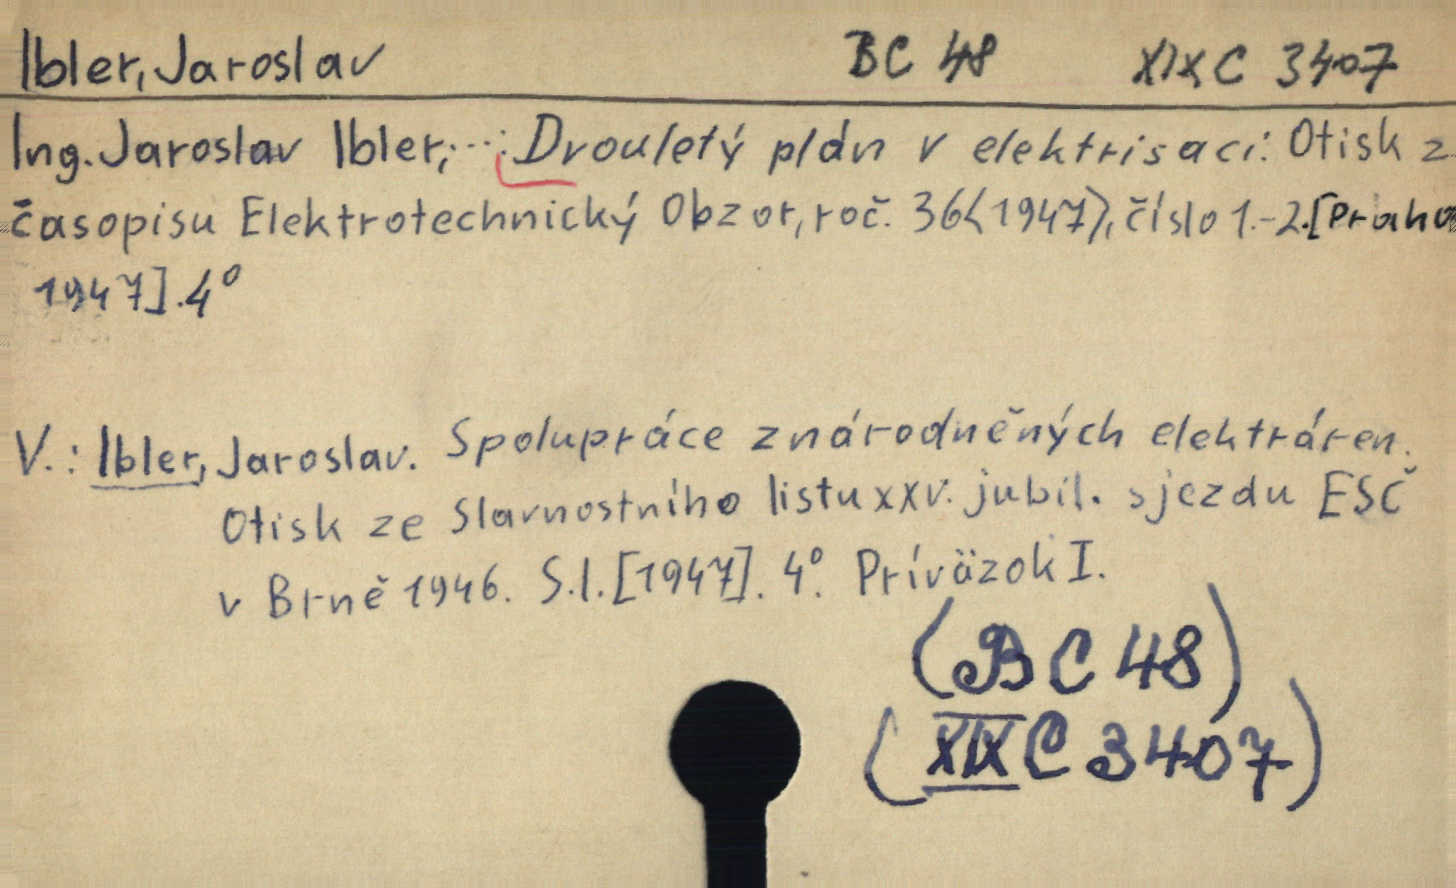 Ibler, Jaroslav BC 48 XIX C 3407
Ing. Jaroslav Ibler,...: Drouletý plán v elektrisaci. Otisk z
časopisu Elektrotechnický Obzor, roč. 36<1947>, číslo 1.-2.[Praha
1947].4°
V.: Ibler, Jaroslav. Spolupráce znárodněných elektráren.
Otisk ze Slavnostního listu xxv. jubil. sjezdu ESČ
v Brně 1946. S.l.[1947]. 4°. Príväzok I.
(BC 48)
(XIX C 3407)